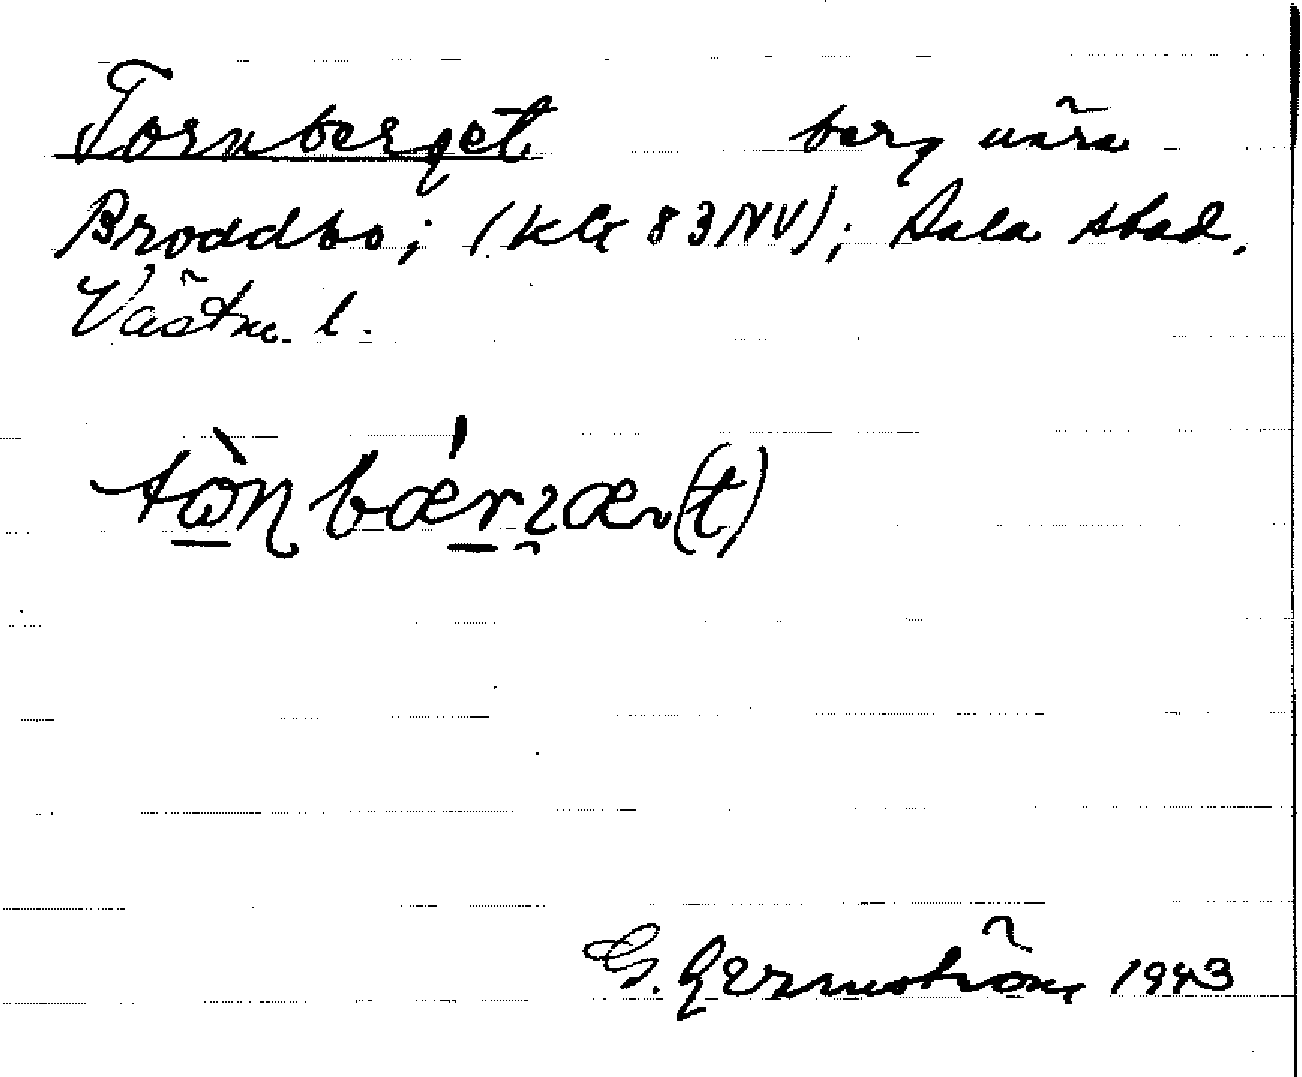 Tornberget berg nära
Broddbo; (kbl 83NV); Sala stad,
Västm. l.
tὼn bǽrɿæ(t)
G. Germström 1943